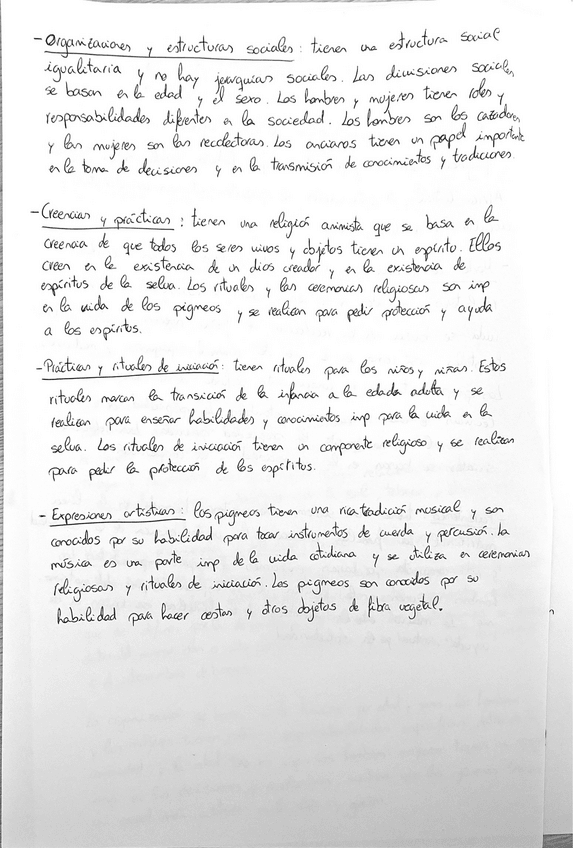 - Organizaciones y estructuras sociales: tienen una estructura social
igualitaria y no hay jerarquías sociales. Las divisiones sociales
se basan en la edad y el sexo. Los hombres y mujeres tienen roles y
responsabilidades diferentes en la sociedad. Los hombres son los cazadores
y las mujeres son las recolectoras. Los ancianos tienen un papel importante
en la toma de decisiones y en la transmisión de conocimientos y tradiciones.
- Creencias y prácticas: tienen una religión animista que se basa en la
creencia de que todos los seres vivos y objetos tienen un espíritu. Ellos
creen en la existencia de un dios creador y en la existencia de
espíritus de la selva. Los rituales y las ceremonias religiosas son imp
en la vida de los pigmeos y se realizan para pedir protección y ayuda
a los espíritus.
- Prácticas y rituales de iniciación: tienen rituales para los niños y niñas. Estos
rituales marcan la transición de la infancia a la edada adulta y se
realizan para enseñar habilidades y conocimientos imp para la vida en la
selva. Los rituales de iniciación tienen un componente religioso y se realizan
para pedir la protección de los espíritus.
- Expresiones artísticas: los pigmeos tienen una rica tradición musical y son
conocidos por su habilidad para tocar instrumentos de cuerda y percusión. La
música es una parte imp de la vida cotidiana y se utiliza en ceremonias
religiosas y rituales de iniciación. Los pigmeos son conocidos por su
habilidad para hacer cestas y otros objetos de fibra vegetal.